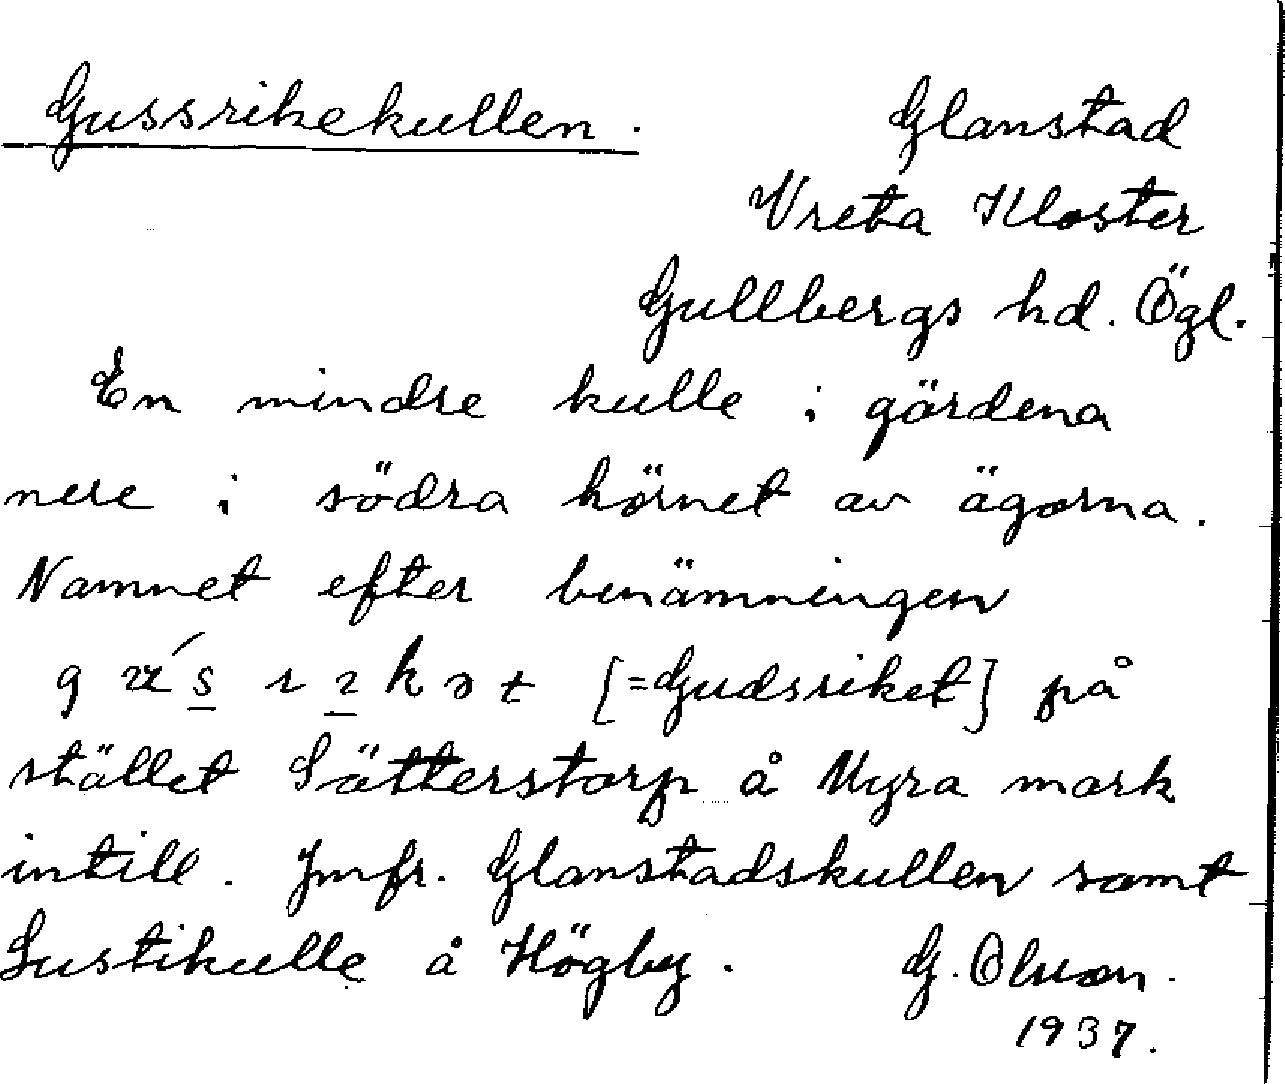 Gussrikekullen. Glanstad
Vreta Kloster
Gullbergs hd. Ögl.
En mindre kulle i gärdena
nere i södra hörnet av ägorna.
Namnet efter benämningen
[=Gudsriket] på
stället Sätterstorp å Myra mark
intill. Jmfr. Glanstadskullen samt
Lustikulle å Högby. G. Olsson.
1937.